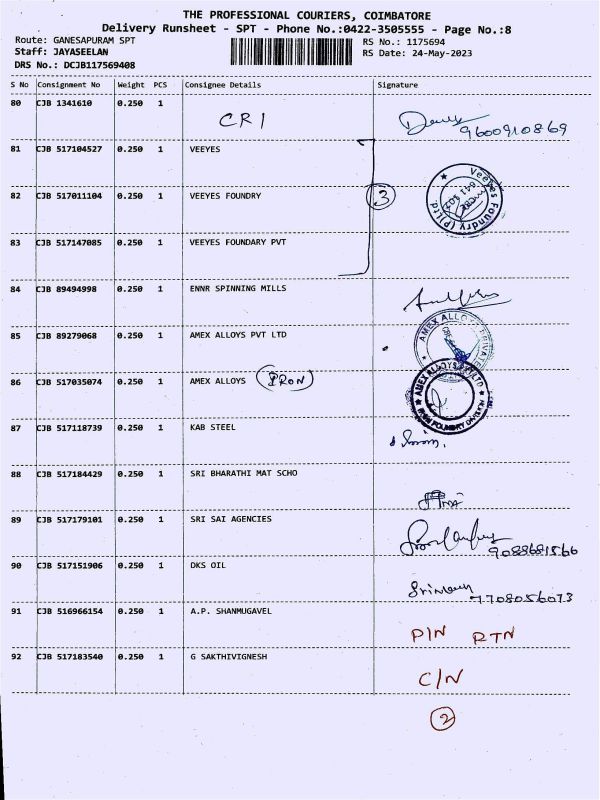 THE PROFESSIONAL COURIERS, COIMBATORE
Delivery Runsheet - SPT - Phone No.:0422-3505555 - Page No.:8
Route: GANESAPURAM SPT
RS No.: 1175694
Staff: JAYASEELAN
RS Date: 24-May-2023
DRS No.: DCJB117569408
S No Consignment No Weight PCS Consignee Details Signature
80 CJB 1341610 0.250 1 CRI 9600910869
81 CJB 517104527 0.250 1 VEEYES
82 CJB 517011104 0.250 1 VEEYES FOUNDRY 3 Veeyes Foundry (P) Ltd
83 CJB 517147085 0.250 1 VEEYES FOUNDARY PVT
84 CJB 89494998 0.250 1 ENNR SPINNING MILLS
85 CJB 89279068 0.250 1 AMEX ALLOYS PVT LTD AMEX ALLOYS PRIVATE
86 CJB 517035074 0.250 1 AMEX ALLOYS IRON AMEX ALLOYS
87 CJB 517118739 0.250 1 KAB STEEL
88 CJB 517184429 0.250 1 SRI BHARATHI MAT SCHO
89 CJB 517179101 0.250 1 SRI SAI AGENCIES 9088681566
90 CJB 517151906 0.250 1 DKS OIL 7708056073
91 CJB 516966154 0.250 1 A.P. SHANMUGAVEL PIN RTN
92 CJB 517183540 0.250 1 G SAKTHIVIGNESH C/N
2